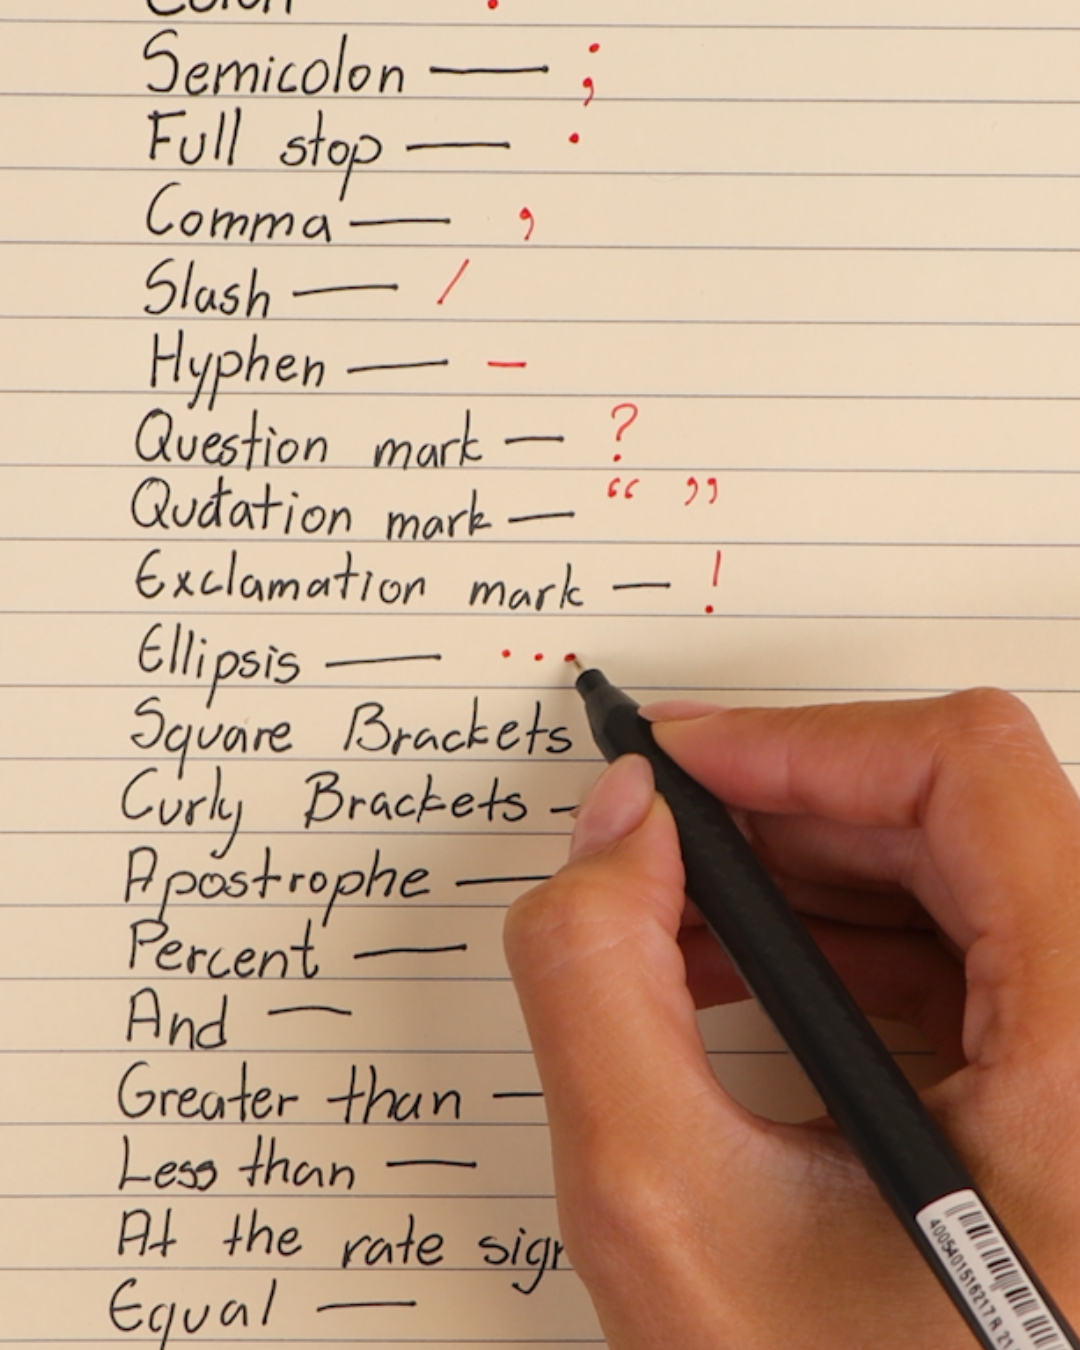 Colon :
Semicolon — ;
Full stop — .
Comma — ,
Slash — /
Hyphen — -
Question mark — ?
Quotation mark — “ ”
Exclamation mark — !
Ellipsis — ...
Square Brackets
Curly Brackets —
Apostrophe —
Percent —
And —
Greater than —
Less than —
At the rate sign
Equal —